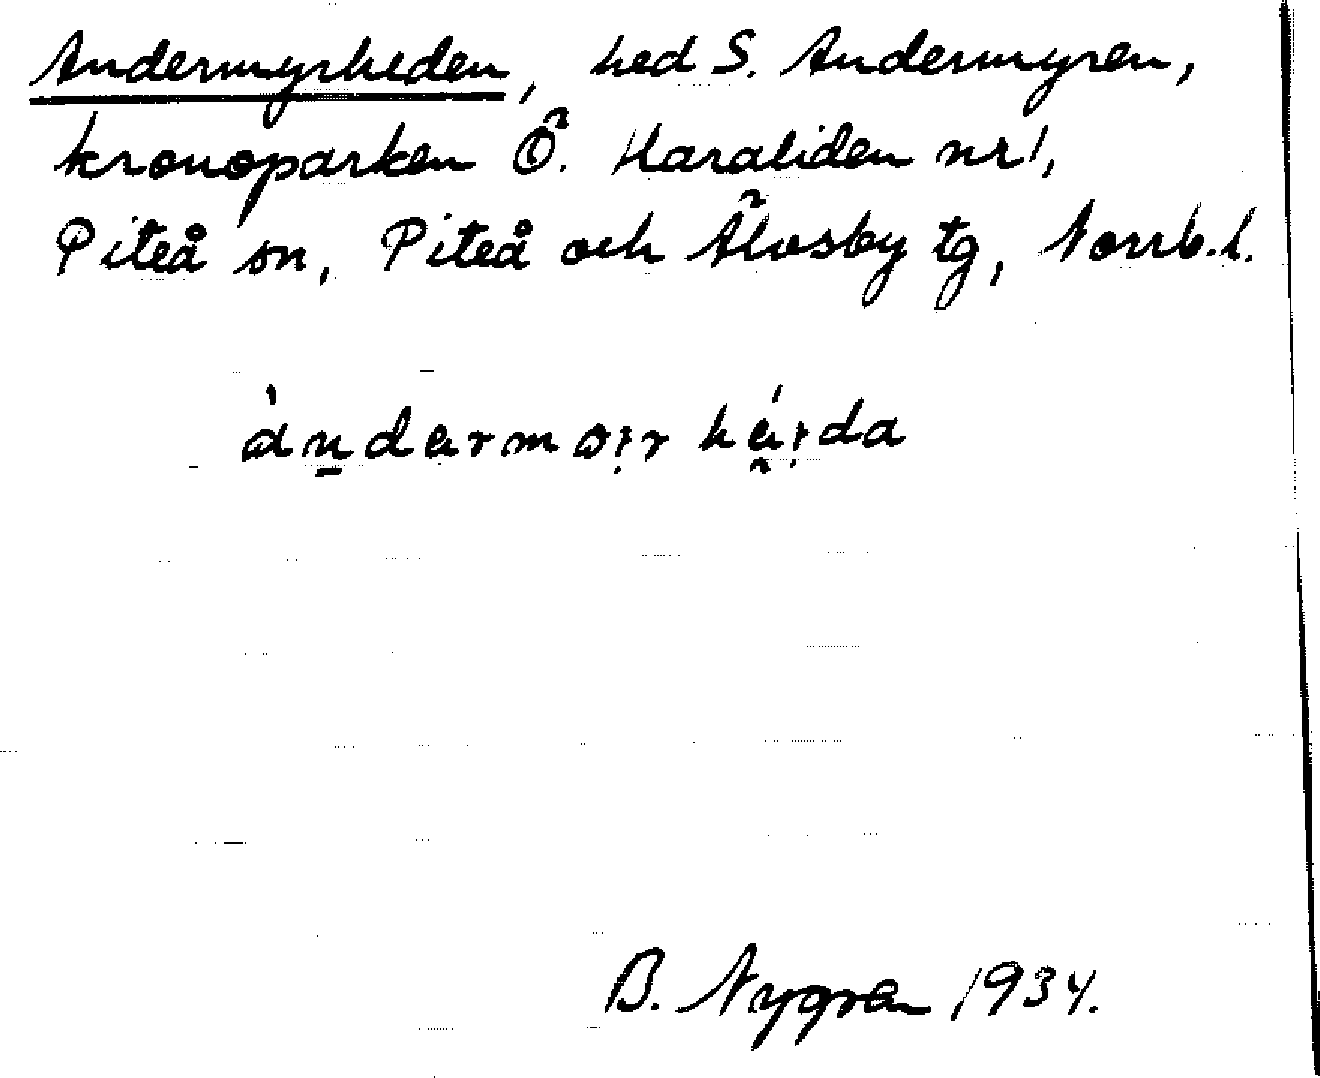 Andermyrheden, hed S. Andermyren,
kronoparken Ö. Haraliden nr 1,
Piteå sn, Piteå och Älvsby tg, Norrb. l.
B. Nygren 1934.